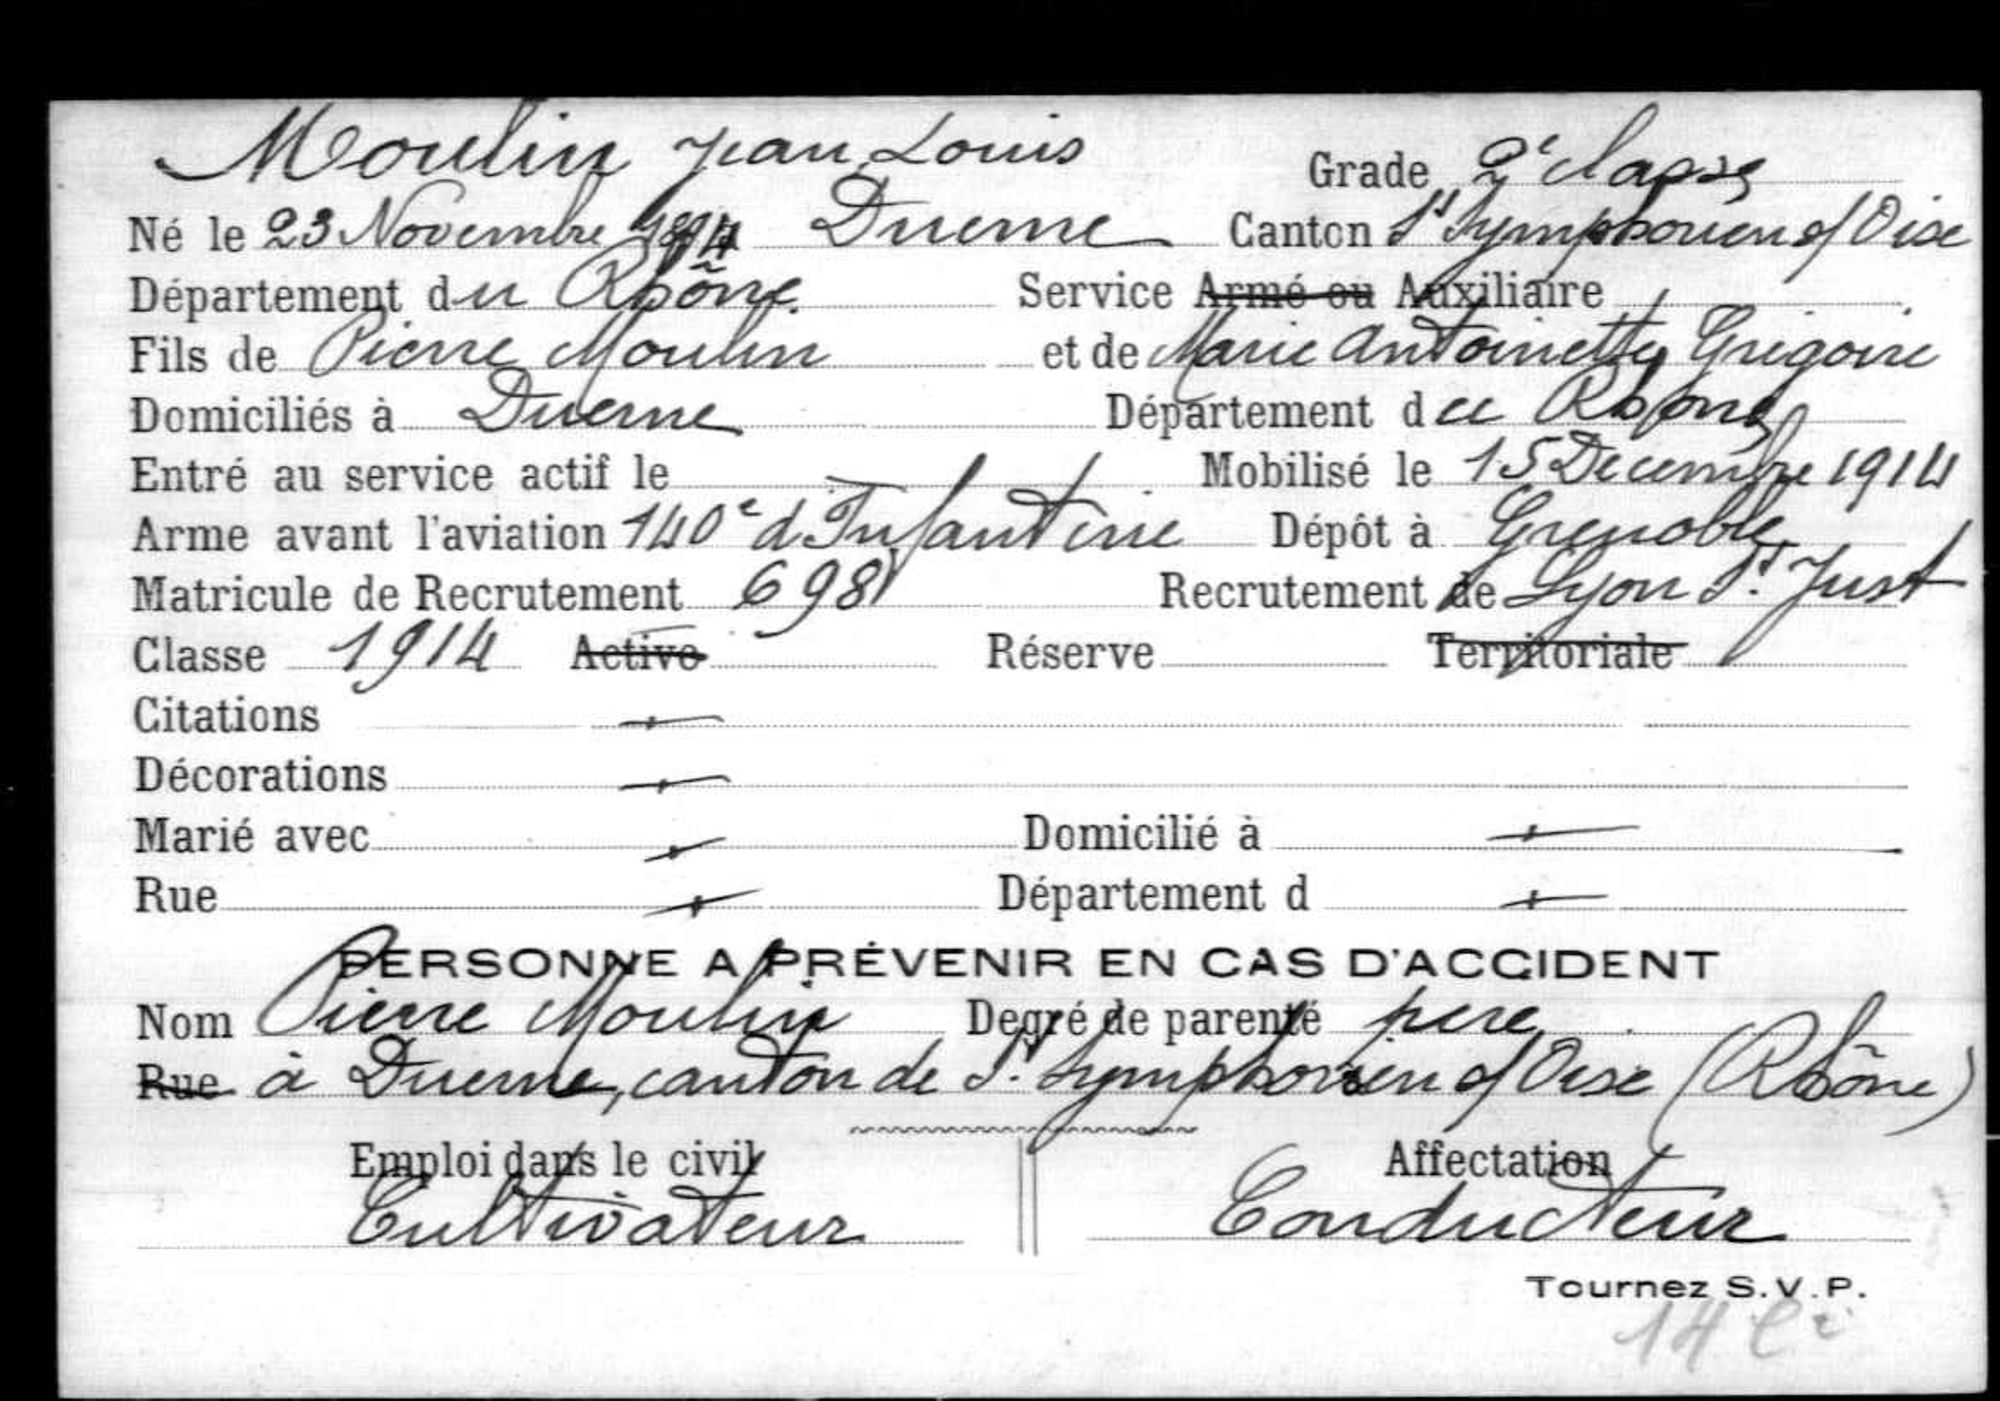 Moulin Jean Louis Grade 2e classe
Né le 23 Novembre 1894 Duerne Canton St Symphorien s/ Oise
Département du Rhône Service Armé ou Auxiliaire
Fils de Pierre Moulin et de Marie Antoinette Grégoire
Domiciliés à Duerne Département du Rhône
Entré au service actif le Mobilisé le 15 Decembre 1914
Arme avant l'aviation 140e d'Infanterie Dépôt à Grenoble
Matricule de Recrutement 698 Recrutement de Lyon St. Just
Classe 1914 Active Réserve Territoriale
Citations
Décorations
Marié avec Domicilié à
Rue Département d
PERSONNE A PRÉVENIR EN CAS D'ACCIDENT
Nom Pierre Moulin Degré de parenté père
Rue à Duerne, canton de St. Symphorien s/ Oise (Rhône)
Emploi dans le civil Affectation
Cultivateur Conducteur
Tournez S.V.P.
14